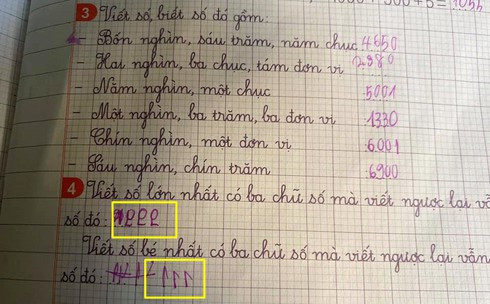 1000 + 500 + 5 = 1055
3 Viết số, biết số đó gồm:
- Bốn nghìn, sáu trăm, năm chục 4650
- Hai nghìn, ba chục, tám đơn vị 2980
- Năm nghìn, một chục 5001
- Một nghìn, ba trăm, ba đơn vị 1330
- Chín nghìn, một đơn vị 6001
- Sáu nghìn, chín trăm 6900
4 Viết số lớn nhất có ba chữ số mà viết ngược lại vẫ
số đó:
Viết số bé nhất có ba chữ số mà viết ngược lại vẫn
số đó: 111